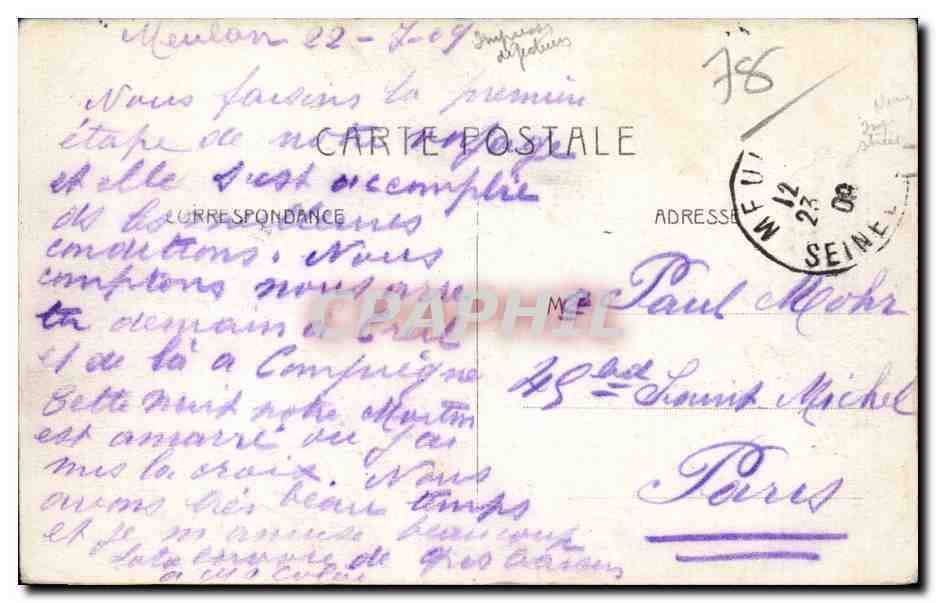 Meulan 22-7-09
78
Nous faisons la première
étape de notre voyage
CARTE POSTALE
et elle s'est accomplie
ds les meilleures
CORRESPONDANCE
ADRESSE
conditions. Nous
comptons nous arrê
ter demain à Creil
et de là à Compiègne
Cette nuit notre Martin
est amarré où j'ai
mis la croix. Nous
avons très beau temps
et je m'amuse beaucoup
Lola envoie de gros baisers
MEU
12
23
09
SEINE ET
CPARHIL
Mme Paul Mohr
45 bd Saint Michel
Paris